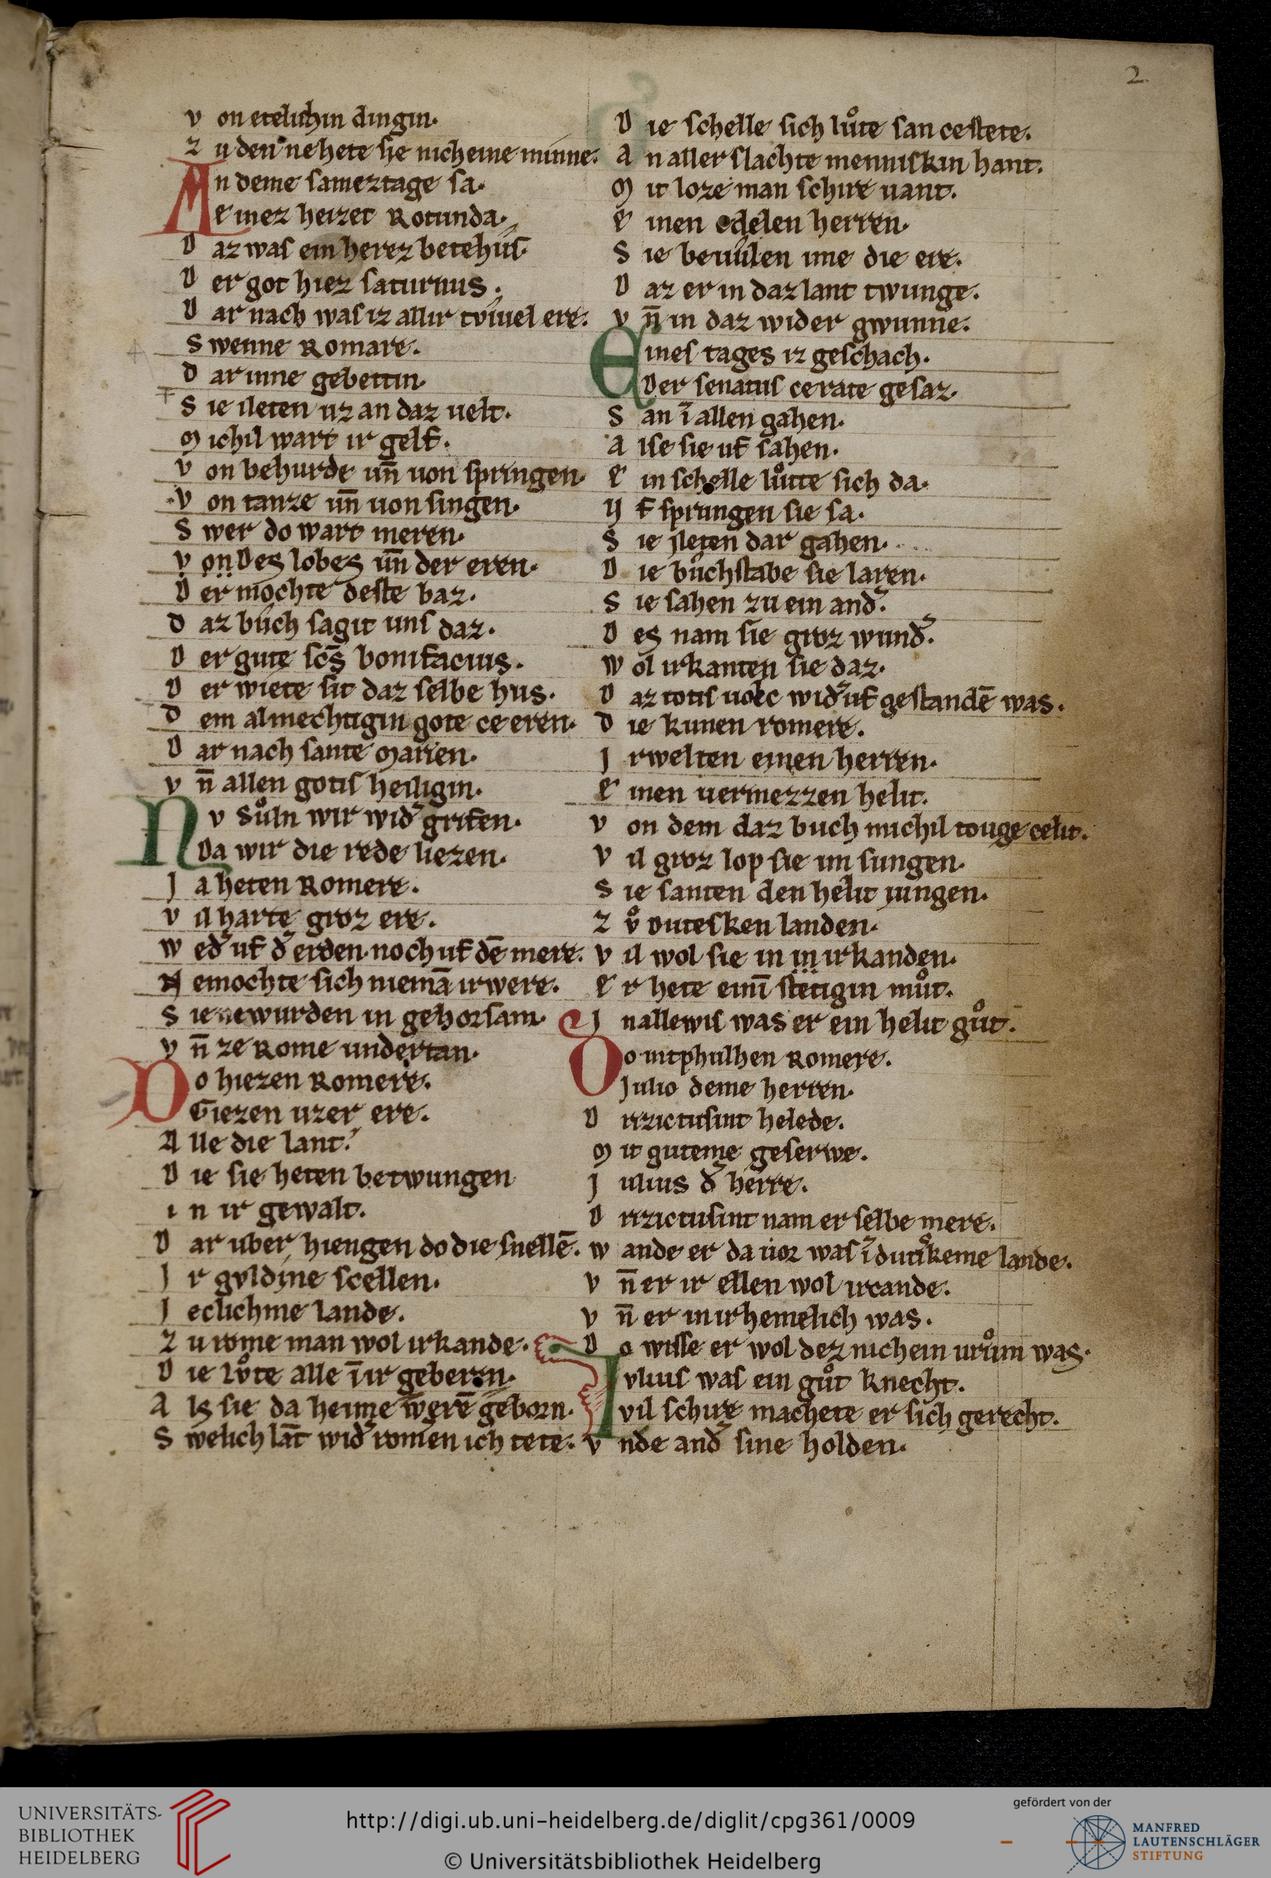 2
von etelichin dingin.
zu den nehete sie nicheine minne.
An deme sameztage sa.
Einez heizet Rotunda.
Daz was ein herez betehus.
Der got hiez saturnus.
Dar nach was iz allir tviuel ere.
Swenne Romare.
dar inne gebettin.
Sie ileten uz an daz uelt.
Michil wart ir gelf.
von behurde un̄ uon springen.
von tanze un̄ uon singen.
Swer do wart meren.
von des lobes un̄ der eren.
Der mochte deste baz.
daz bůch sagit uns daz.
Der gute sc̄s bonifacius.
Der wiete sit daz selbe hus.
dem almechtigin gote ce eren.
Dar nach sante Marien.
vn̄ allen gotis heiligin.
Nv sůln wir wid̓ grifen.
Da wir die rede liezen.
Ja heten Romere.
vil harte groz ere.
wed̓ uf d̓ erden. noch uf dē mere.
Nemochte sich niemā irwere.
Sie newurden in gehorsam.
vn̄ ze Rome undertan.
Do hiezen Romere.
Giezen uzer ere.
Alle die lant.
Die sie heten betwungen
in ir gewalt.
Dar uber hiengen do die snellē.
Jr gvldine scellen.
Jeclichme lande.
zu rome man wol irkande.
Die lv̊te alle ī ir gebern.
Als sie da heime werē geborn.
Swelich lāt wid̓ romen ich tete.
Die schelle sich lůte san cestete.
An aller slachte menniskin hant.
Mit loze man schire uant.
Einen edelen herren.
Sie beuulen ime die ere.
Daz er in daz lant twunge.
vn̄ in daz wider gwunne.
Eines tages iz geschach.
Der senatus cerate gesaz.
San ī allen gahen.
Alse sie uf sahen.
Ein schelle lůtte sich da.
Uf sprungen sie sa.
Sie ileten dar gahen.
Die bůchstabe sie laren.
Sie sahen zu ein and̓.
Des nam sie groz wund̓.
wol irkanten sie daz.
Daz totis uolc wid̓ uf gestandē was.
die kunen romere.
Jrwelten einen herren.
Einen uermezzen helit.
von dem daz buch michil touge celit.
Vil groz lop sie im sungen.
Sie santen den helit jungen.
Zv̊ dutesken landen.
vil wol sie in in irkanden.
Er hete einī stetigin můt.
Jnallewis was er ein helit gůt.
Do intphulhen Romere.
Julio deme herren.
Drizictusint helede.
Mit guteme geserwe.
Julius d̓ herre.
Drizictusint nam er selbe mere.
wande er da uor was ī dutiskeme lande.
vn̄ er ir ellen wol ircande.
vn̄ er in irhemelich was.
Do wisse er wol dez nichein urům was.
Jvlius was ein gůt knecht.
vil schire machete er sich gerecht.
vnde and̓ sine holden.
UNIVERSITÄTS-
BIBLIOTHEK
HEIDELBERG
http://digi.ub.uni-heidelberg.de/diglit/cpg361/0009
© Universitätsbibliothek Heidelberg
gefördert von der
MANFRED
LAUTENSCHLÄGER
STIFTUNG